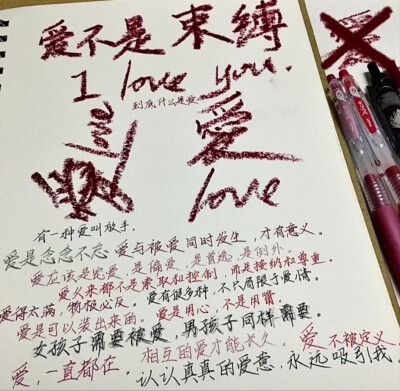 爱不是束缚
I love you.
到底什么是爱
love
爱
love
有一种爱叫放手.
爱是念念不忘 爱与被爱同时发生,才有意义.
爱应该是宠爱 是偏爱 是首选 是例外.
爱从来都不是索取和控制,而是接纳和尊重.
爱得太满,物极必反. 爱有很多种,不只局限于爱情.
爱是可以装出来的. 爱是用心,不是用胃.
女孩子需要被爱,男孩子同样需要.
相互的爱才能长久. 爱 不被定义.
爱,一直都在. 认认真真的爱意,永远吸引我